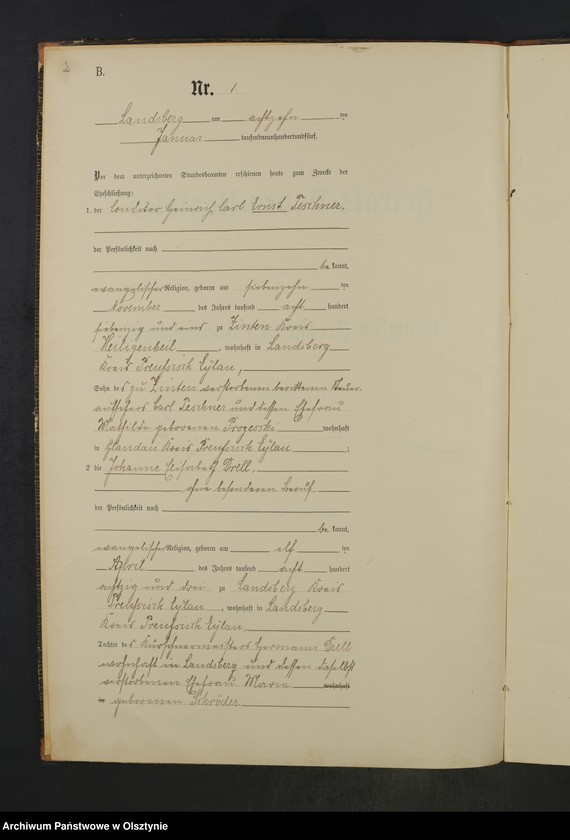 2
B.
Nr. 1
Landsberg am achtzehn ten
Januar tausendneunhundertundfünf.
Vor dem unterzeichneten Standesbeamten erschienen heute zum Zwecke der
Eheschließung:
1. der Conditor Heinrich Carl Ernst Teschner,
der Persönlichkeit nach
be kannt,
evangelischer Religion, geboren am siebenzehn ten
November des Jahres tausend acht hundert
siebenzig und eins zu Zinten Kreis
Heiligenbeil, wohnhaft in Landsberg
Kreis Preußisch Eylau,
Sohn des zu Zinten verstorbenen berittenen Steuer-
aufsehers Carl Teschner und dessen Ehefrau
Mathilde geborenen wohnhaft
in Glandau Kreis Preußisch Eylau;
2. die Johanne Elisabeth Drell,
ohne besonderen Beruf
der Persönlichkeit nach
be kannt,
evangelischer Religion, geboren am elf ten
April des Jahres tausend acht hundert
achtzig und drei zu Landsberg Kreis
Preußisch Eylau, wohnhaft in Landsberg
Kreis Preußisch Eylau,
Tochter des Kürschnermeisters Hermann Drell
wohnhaft in Landsberg und dessen daselbst
verstorbenen Ehefrau Marie wohnhaft
in geborenen Schröder
Archiwum Państwowe w Olsztynie